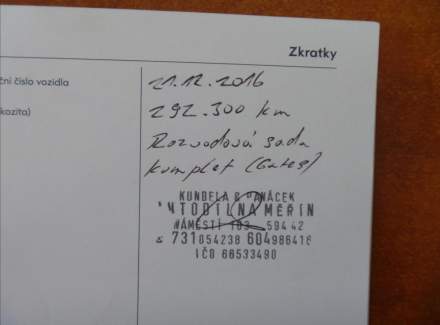 Zkratky
ční číslo vozidla
kozita)
21.12.2016
292.300 km
Rozvodová sada
komplet (Gates)
KUNDELA & PANÁČEK
AUTODÍLNA MĚŘÍN
NÁMĚSTÍ 103 594 42
731 854238 604 986416
IČO 66533490